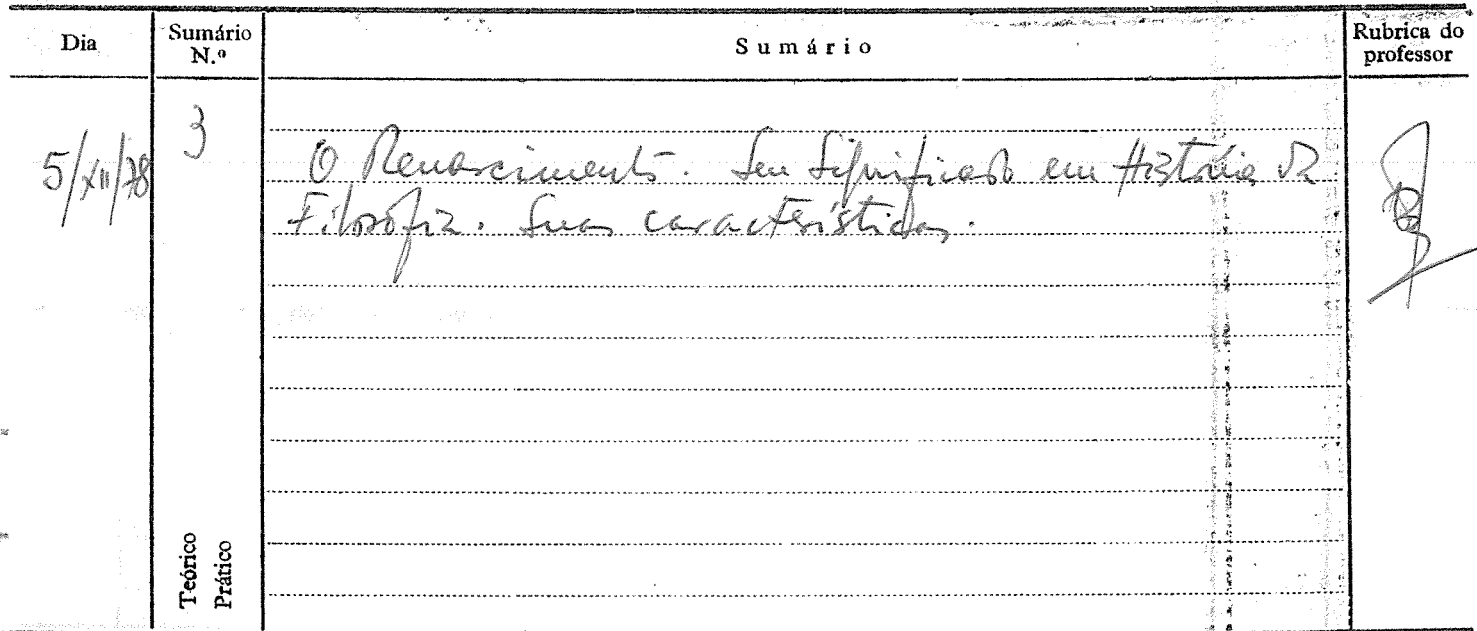 Dia
Sumário N.º
Sumário
Rubrica do professor
5/XII/78
3
O Renascimento. Seu Significado em História da
Filosofia. Suas características.
Teórico
Prático